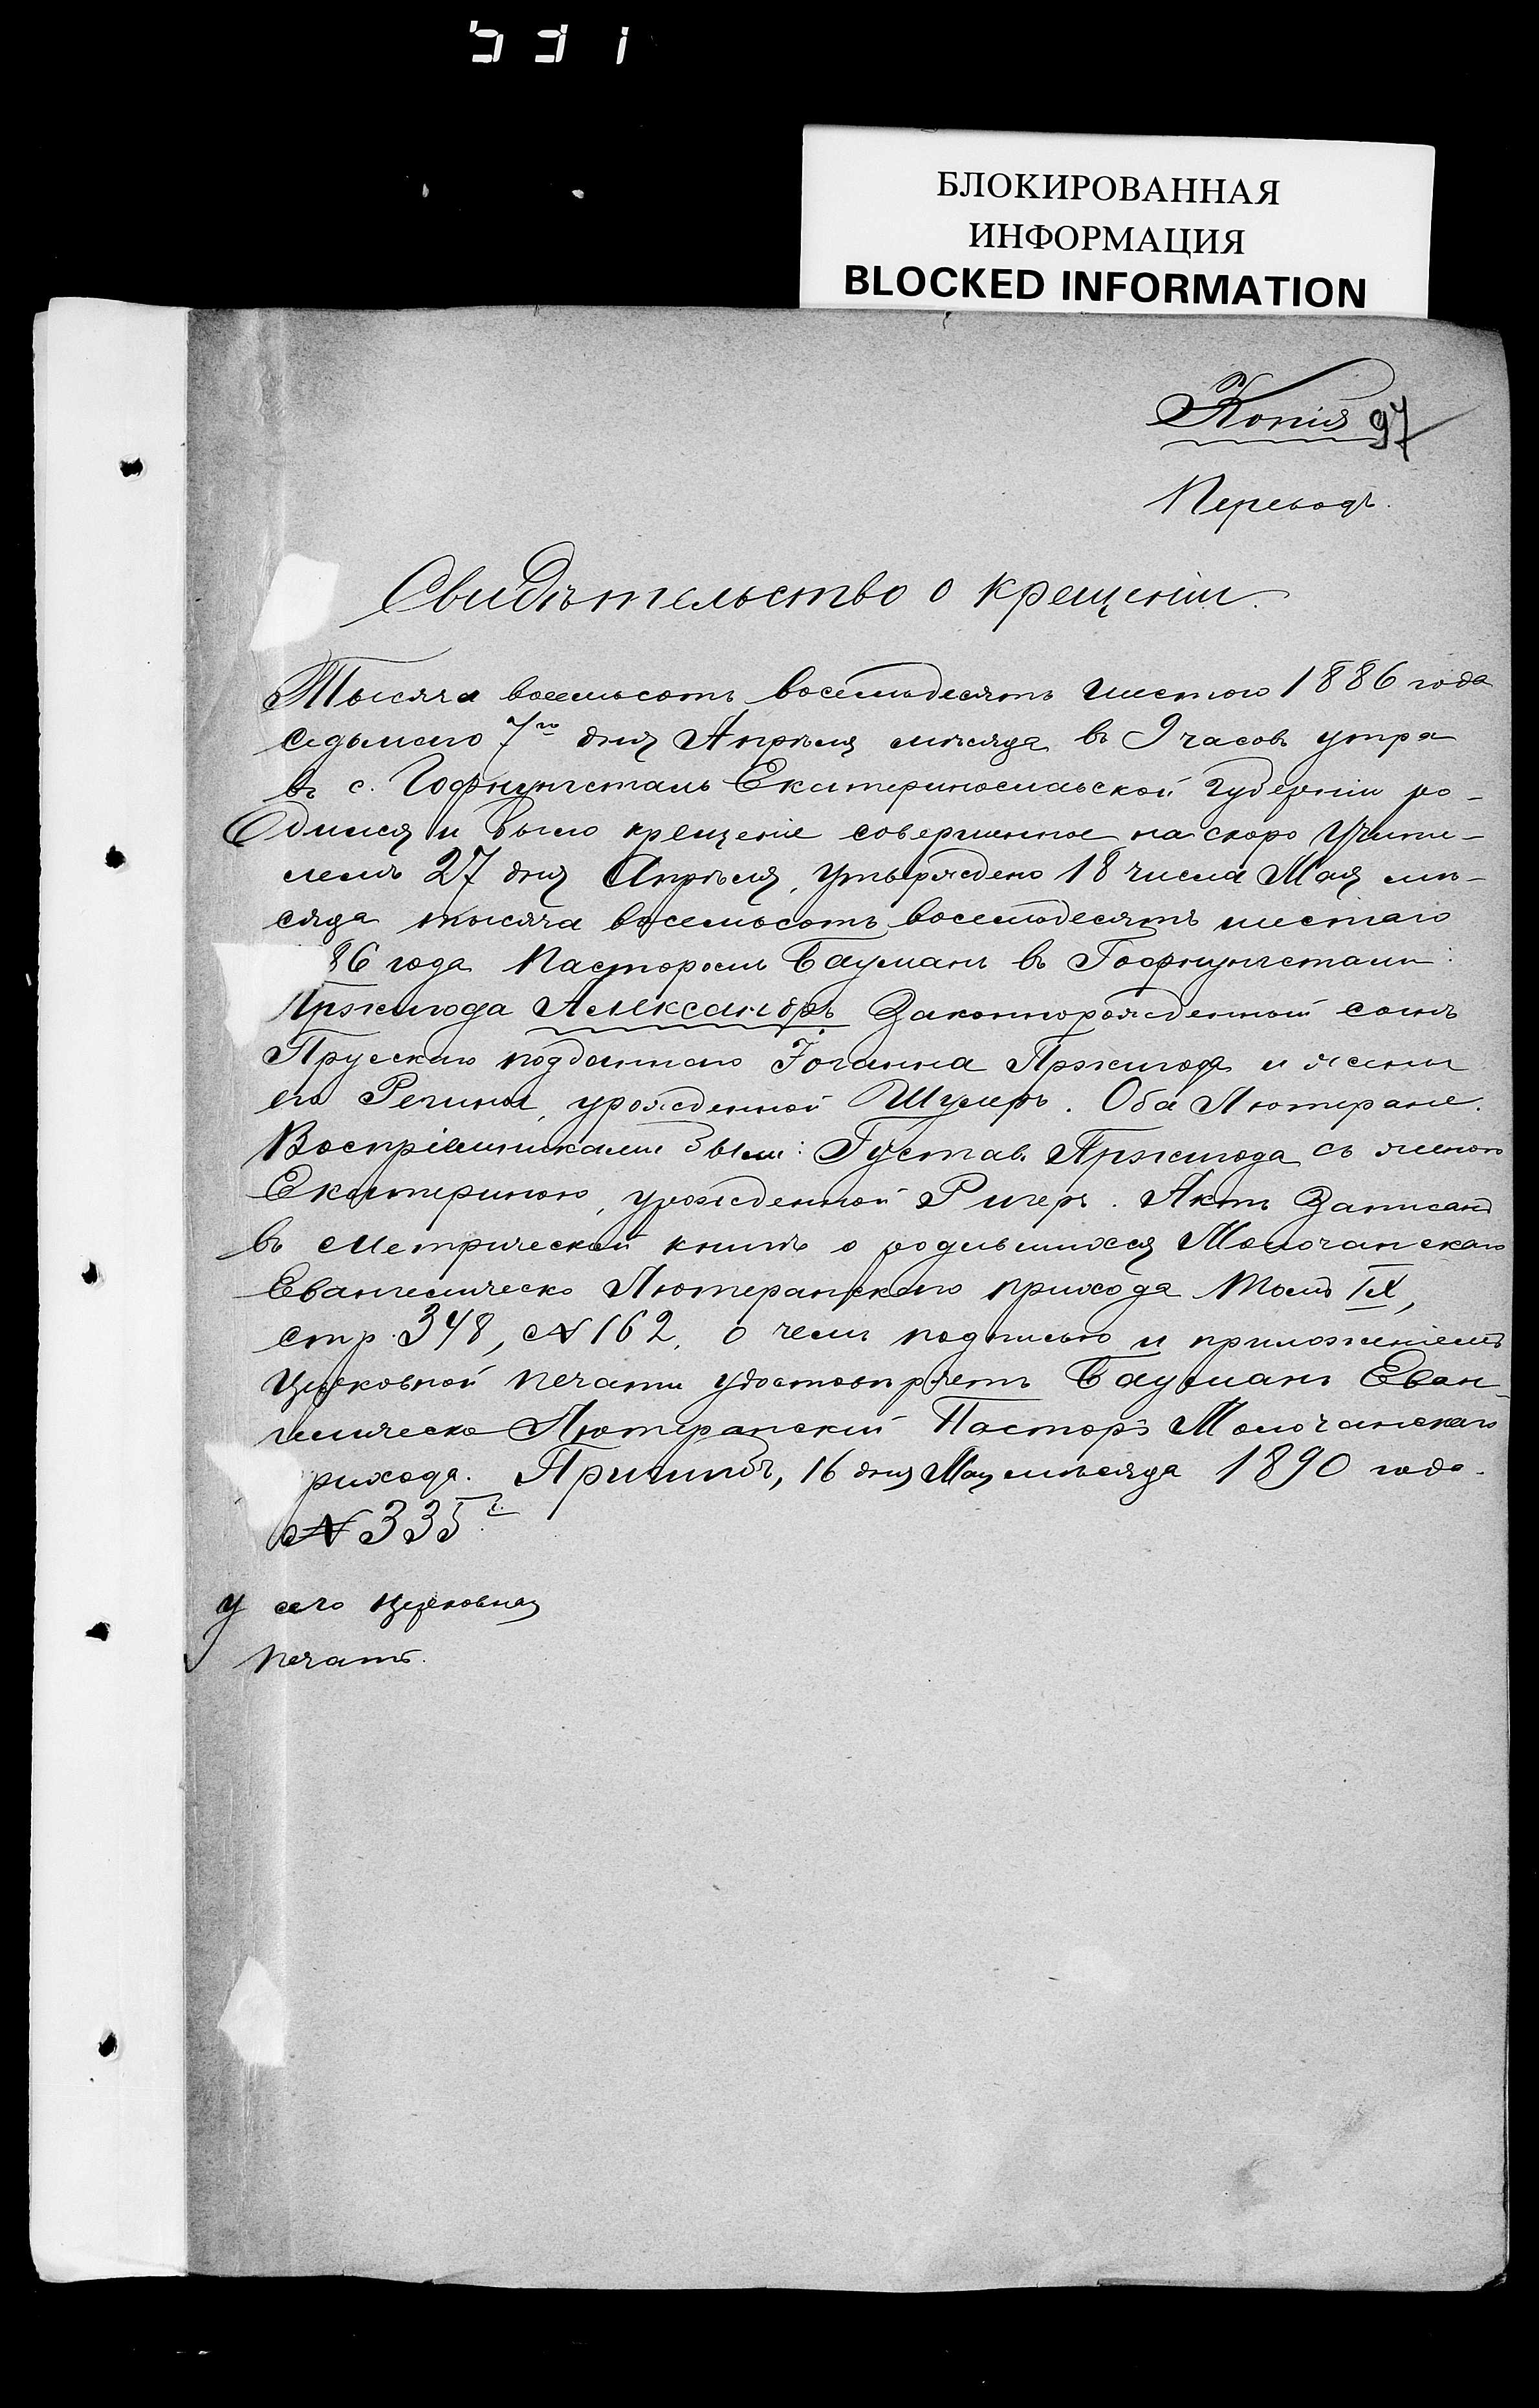 531
БЛОКИРОВАННАЯ
ИНФОРМАЦИЯ
BLOCKED INFORMATION
Копія 97
Переводъ.
Свидѣтельство о крещеніи.
Тысяча восемьсотъ восемьдесятъ шестого 1886 года
седьмого 7го дня Апрѣля мѣсяца въ 9 часовъ утра
въ с. Гофнунгсталь Екатеринославской Губерніи ро-
дился и было крещеніе совершенное на скоро Учите-
лемъ 27 дня Апрѣля, утверждено 18 числа Мая мѣ-
сяца тысяча восемьсотъ восемьдесятъ шестаго
86 года Пасторомъ Бауманъ въ Гофнунгсталѣ:
Пржигода Александръ Законнорожденный сынъ
Прусскаго подданнаго Іоганна Пржигода и жены
его Регины, урожденной Шулеръ. Оба Лютеране.
Воспріемниками были: Густавъ Пржигода съ женою
Екатериною, урожденной Ригеръ. Актъ Записанъ
въ Метрической книгѣ о родившихся Молочанскаго
Евангелическо Лютеранскаго прихода Томъ IX,
стр. 348, № 162, о чемъ подписью и приложеніемъ
церковной печати удостовѣряетъ Бауманъ Еван-
гелическо Лютеранскій Пасторъ Молочанскаго
рихода. Пришибъ, 16 дня Мая мѣсяца 1890 года.
№ 335
У сего церковная
печать.